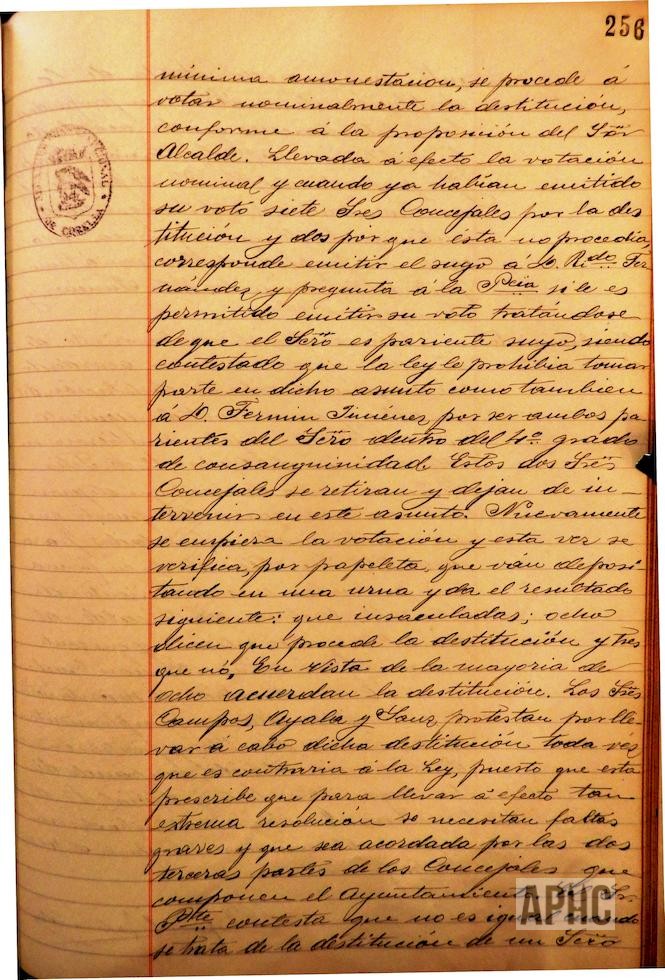 256
mínima amonestación, se procede á
votar nominalmente la destitución,
conforme á la proposición del Sor
Alcalde. Llevada a efecto la votación
nominal y cuando ya habían emitido
su votó siete Sres Concejales por la des
titución y dos por que ésta no procedia,
corresponde emitir el suyo á D. Rdo Fer
nández y pregunta á la Pcia si le es
permitido emitir su voto tratándose
de que el Srio es pariente suyo, siendo
contestado que la ley le prohibia tomar
parte en dicho asunto como tambien
á D. Fermin Jiménez por ser ambos pa
rientes del Srio dentro del 4º grado
de consanguinidad. Estos dos Sres
Concejales se retiran y dejan de in-
tervenir en este asunto. Nuevamente
se empieza la votación y esta vez se
verifica, por papeleta, que ván deposi-
tando en una urna y da el resultado
siguiente: que insaculadas; ocho
dicen que procede la destitución y tres
que nó. En vista de la mayoria de
ocho acuerdan la destitución. Los Sres
Campos, Ayala y Sanz, protestan por lle-
var á cabo dicha destitución toda vez
que es contraria á la Ley, puesto que esta
prescribe que para llevar á efecto tan
extrema resolución se necesitan faltas
graves y que sea acordada por las dos
terceras partes de los Concejales que
componen el Ayuntamiento. El Sr.
Pte contesta que no es igual cuando
se trata de la destitución de un Srio
DE CORELLA
APHC